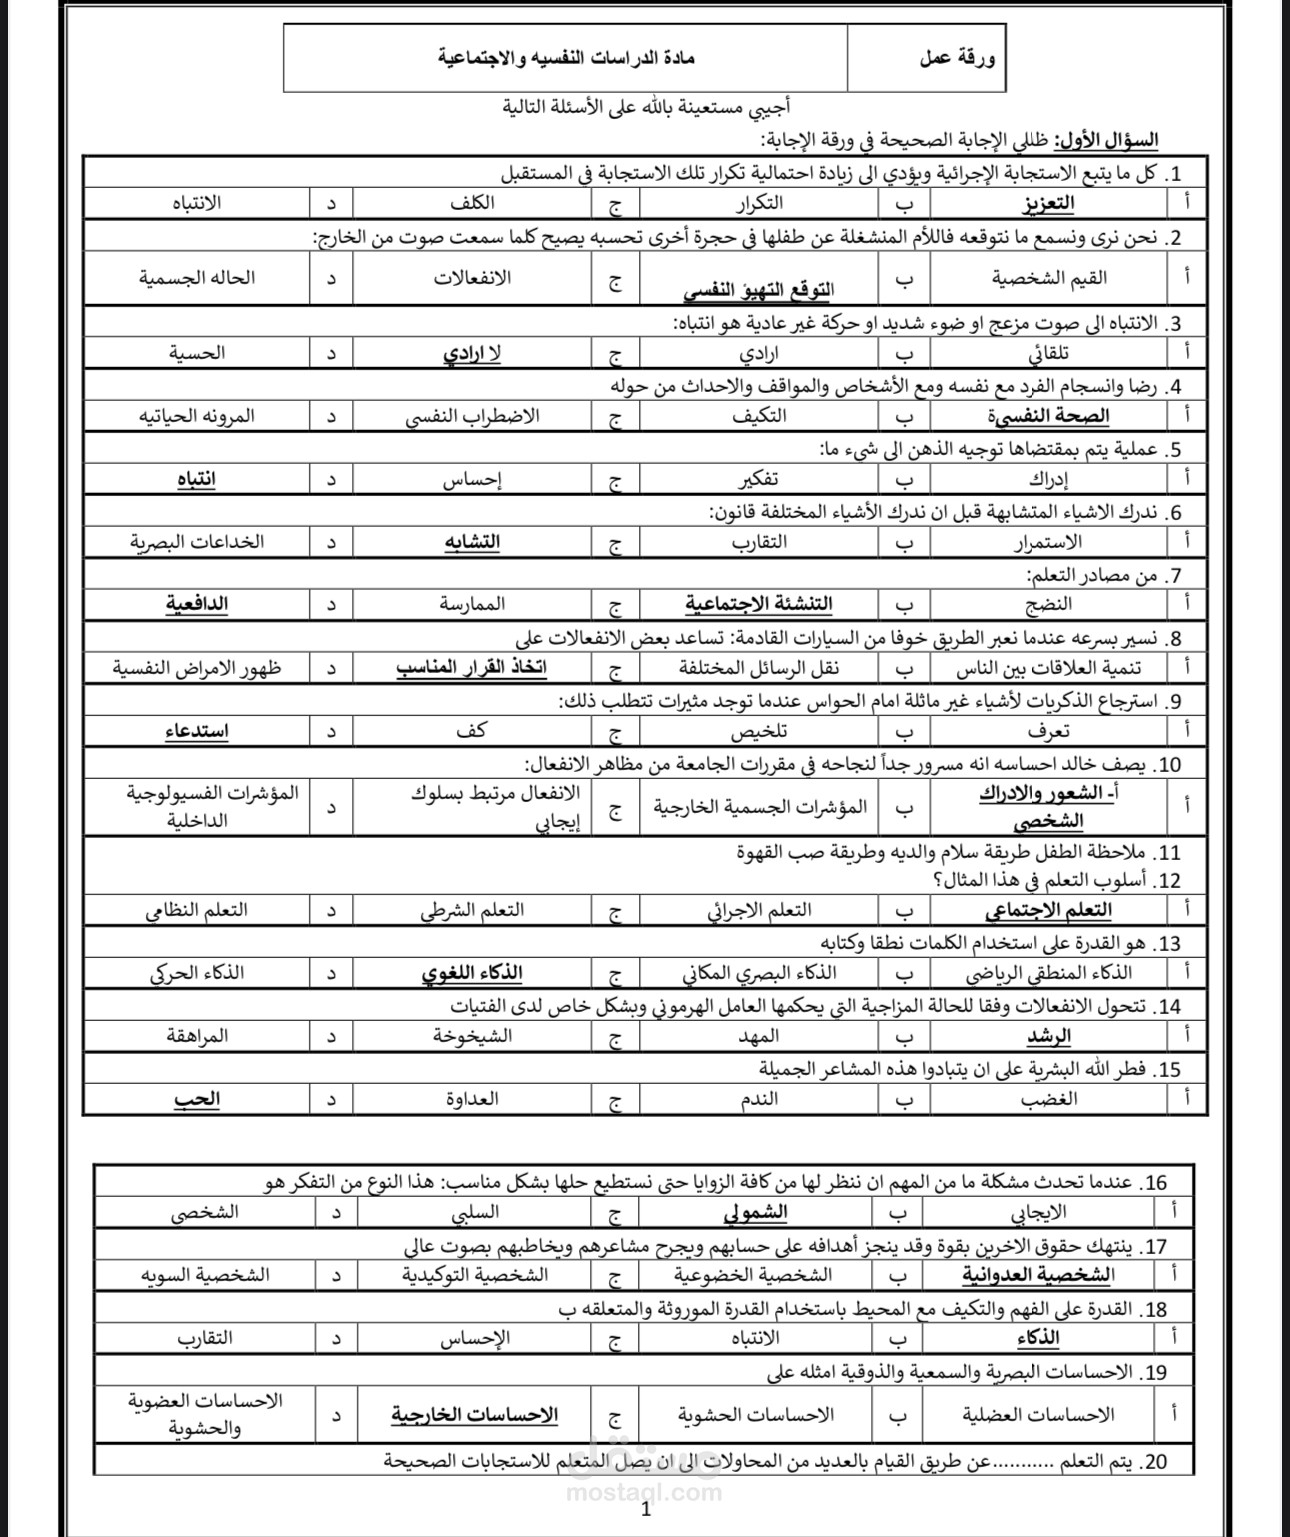 ورقة عمل
مادة الدراسات النفسيه والاجتماعية
أجيبي مستعينة بالله على الأسئلة التالية
السؤال الأول: ظللي الإجابة الصحيحة في ورقة الإجابة:
1. كل ما يتبع الاستجابة الإجرائية ويؤدي الى زيادة احتمالية تكرار تلك الاستجابة في المستقبل
أ التعزيز ب التكرار ج الكلف د الانتباه
2. نحن نرى ونسمع ما نتوقعه فاللأم المنشغلة عن طفلها في حجرة أخرى تحسبه يصيح كلما سمعت صوت من الخارج:
أ القيم الشخصية ب التوقع التهيؤ النفسي ج الانفعالات د الحاله الجسمية
3. الانتباه الى صوت مزعج او ضوء شديد او حركة غير عادية هو انتباه:
أ تلقائي ب ارادي ج لا ارادي د الحسية
4. رضا وانسجام الفرد مع نفسه ومع الأشخاص والمواقف والاحداث من حوله
أ الصحة النفسية ب التكيف ج الاضطراب النفسي د المرونه الحياتيه
5. عملية يتم بمقتضاها توجيه الذهن الى شيء ما:
أ إدراك ب تفكير ج إحساس د انتباه
6. ندرك الاشياء المتشابهة قبل ان ندرك الأشياء المختلفة قانون:
أ الاستمرار ب التقارب ج التشابه د الخداعات البصرية
7. من مصادر التعلم:
أ النضج ب التنشئة الاجتماعية ج الممارسة د الدافعية
8. نسير بسرعه عندما نعبر الطريق خوفا من السيارات القادمة: تساعد بعض الانفعالات على
أ تنمية العلاقات بين الناس ب نقل الرسائل المختلفة ج اتخاذ القرار المناسب د ظهور الامراض النفسية
9. استرجاع الذكريات لأشياء غير ماثلة امام الحواس عندما توجد مثيرات تتطلب ذلك:
أ تعرف ب تلخيص ج كف د استدعاء
10. يصف خالد احساسه انه مسرور جداً لنجاحه في مقررات الجامعة من مظاهر الانفعال:
أ أ- الشعور والادراك الشخصي ب المؤشرات الجسمية الخارجية ج الانفعال مرتبط بسلوك إيجابي د المؤشرات الفسيولوجية الداخلية
11. ملاحظة الطفل طريقة سلام والديه وطريقة صب القهوة
12. أسلوب التعلم في هذا المثال؟
أ التعلم الاجتماعي ب التعلم الاجرائي ج التعلم الشرطي د التعلم النظامي
13. هو القدرة على استخدام الكلمات نطقا وكتابه
أ الذكاء المنطقي الرياضي ب الذكاء البصري المكاني ج الذكاء اللغوي د الذكاء الحركي
14. تتحول الانفعالات وفقا للحالة المزاجية التي يحكمها العامل الهرموني وبشكل خاص لدى الفتيات
أ الرشد ب المهد ج الشيخوخة د المراهقة
15. فطر الله البشرية على ان يتبادوا هذه المشاعر الجميلة
أ الغضب ب الندم ج العداوة د الحب
16. عندما تحدث مشكلة ما من المهم ان ننظر لها من كافة الزوايا حتى نستطيع حلها بشكل مناسب: هذا النوع من التفكر هو
أ الايجابي ب الشمولي ج السلبي د الشخصي
17. ينتهك حقوق الاخرين بقوة وقد ينجز أهدافه على حسابهم ويجرح مشاعرهم ويخاطبهم بصوت عالي
أ الشخصية العدوانية ب الشخصية الخضوعية ج الشخصية التوكيدية د الشخصية السويه
18. القدرة على الفهم والتكيف مع المحيط باستخدام القدرة الموروثة والمتعلقه ب
أ الذكاء ب الانتباه ج الإحساس د التقارب
19. الاحساسات البصرية والسمعية والذوقية امثله على
أ الاحساسات العضلية ب الاحساسات الحشوية ج الاحساسات الخارجية د الاحساسات العضوية والحشوية
20. يتم التعلم ...........عن طريق القيام بالعديد من المحاولات الى ان يصل المتعلم للاستجابات الصحيحة
مستقل
mostaql.com
1